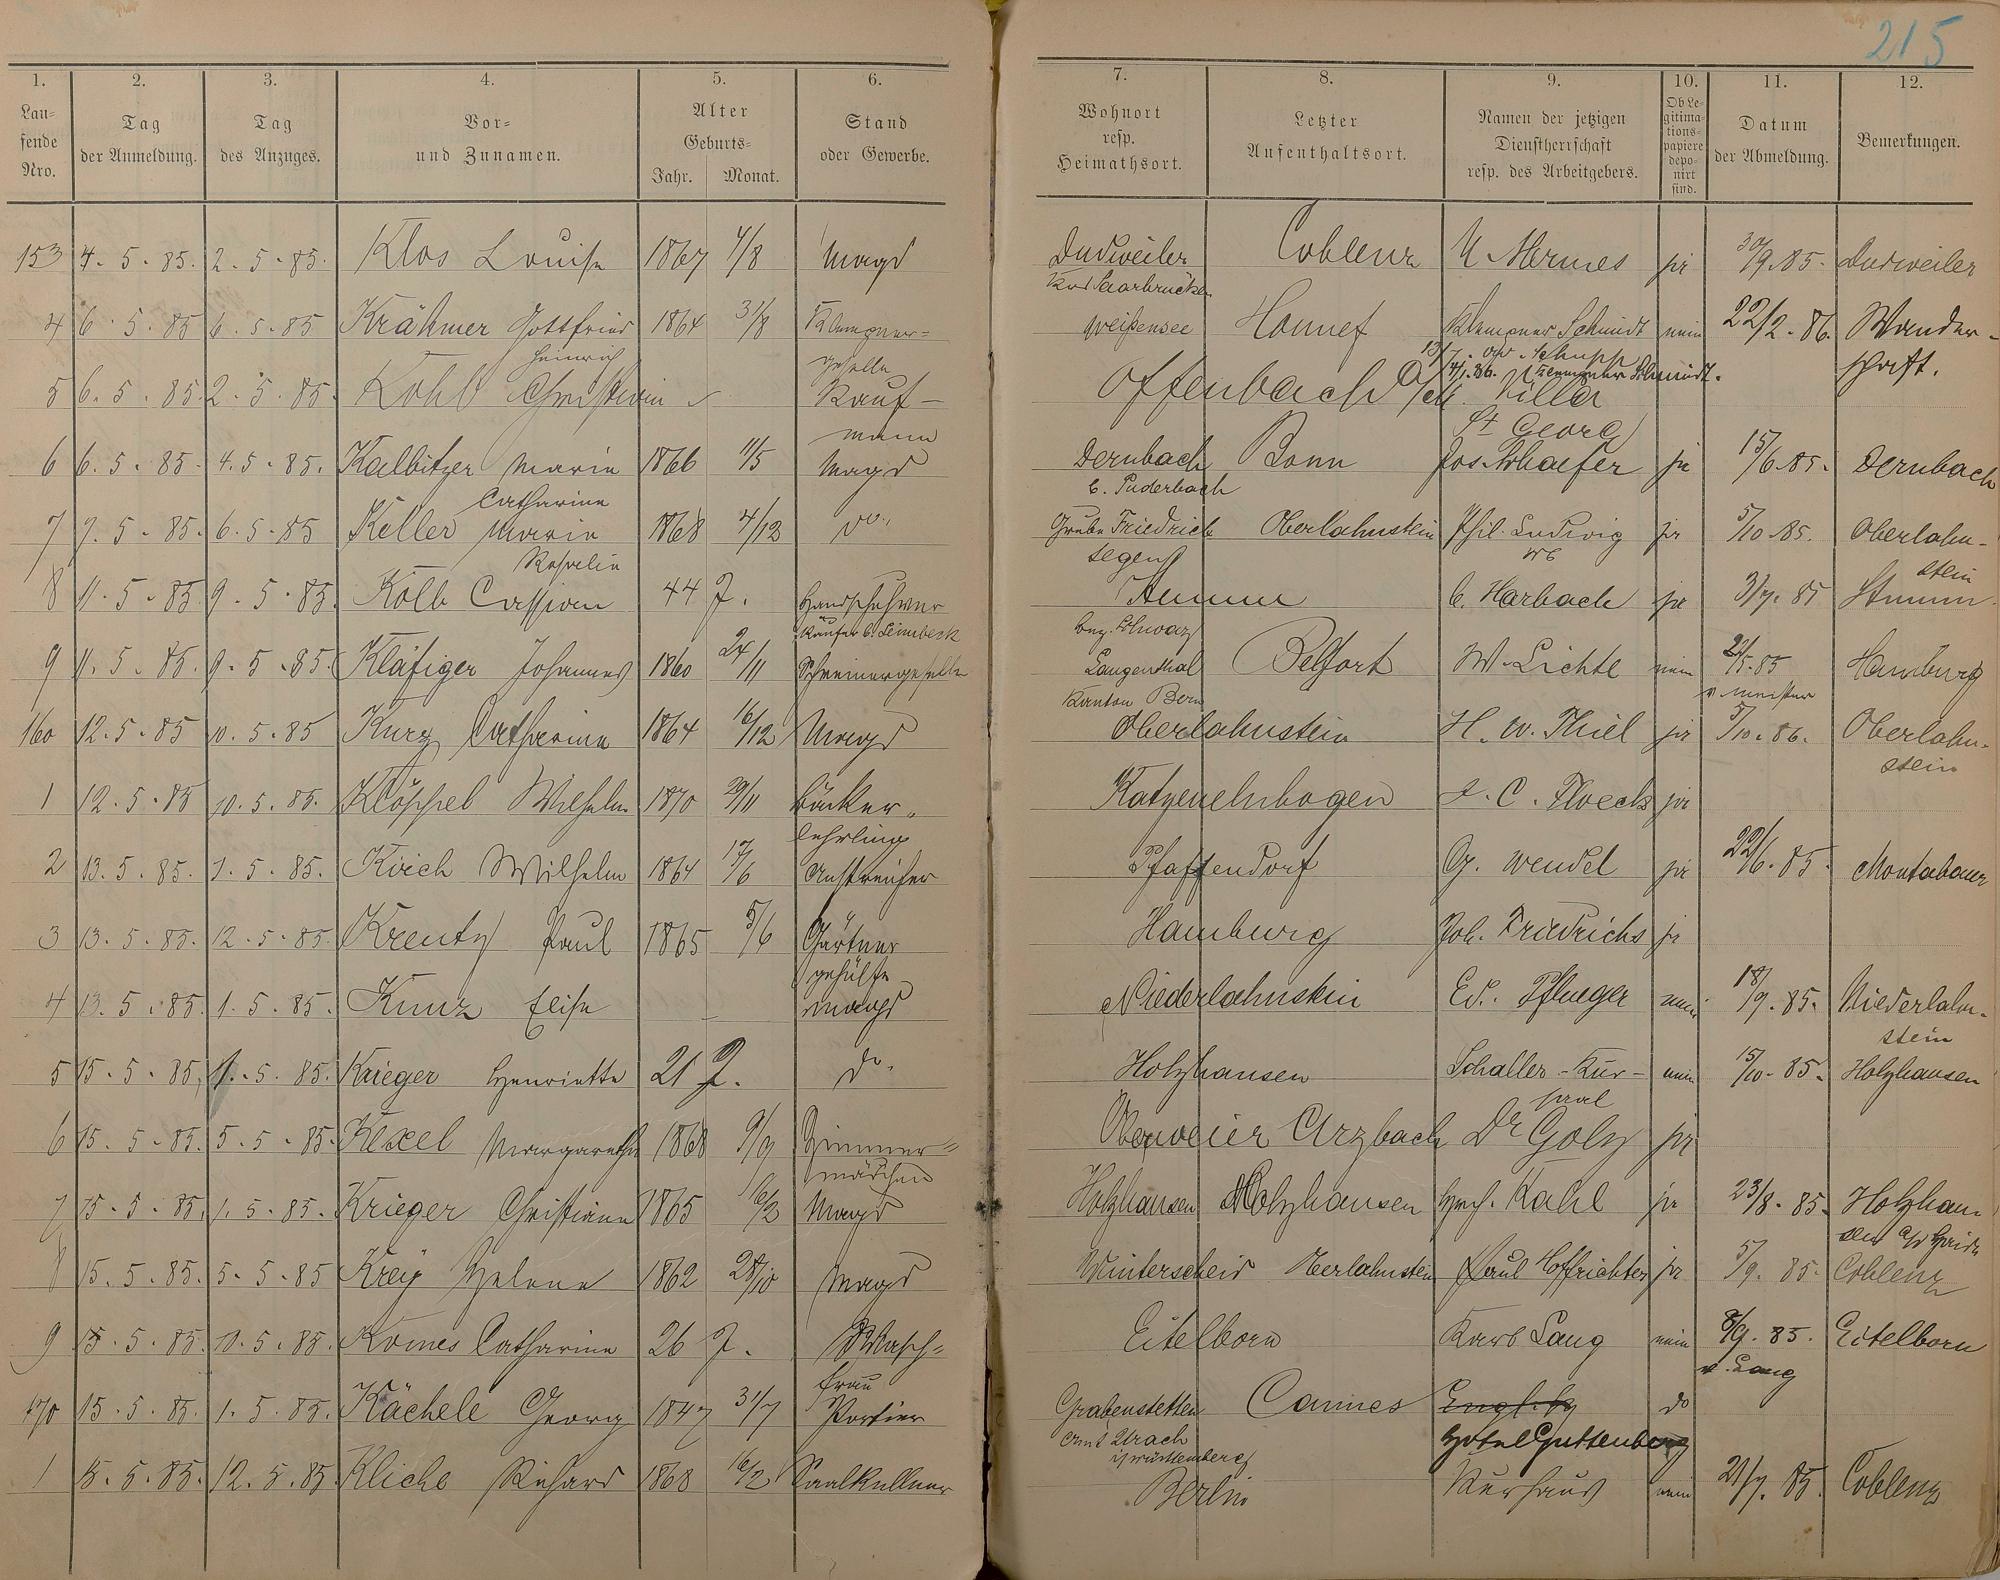 215
1. 2. 3. 4. 5. 6. 7. 8. 9. 10. 11. 12.
Lau-
fende
Nro.
Tag
der Anmeldung.
Tag
des Anzuges.
Vor-
und Zunamen.
Alter
Geburts-
Jahr. Monat.
Stand
oder Gewerbe.
Wohnort
resp.
Heimathsort.
Letzter
Aufenthaltsort.
Namen der jetzigen
Dienstherrschaft
resp. des Arbeitgebers.
Ob Le-
gitima-
tions-
papiere
depo-
nirt
sind.
Datum
der Abmeldung.
Bemerkungen.
153 4. 5. 85. 2. 5. 85. Klos Louise 1867 4/8 Magd Dudweiler Coblenz Hermes ja 30/9. 85. Dudweiler
Saarbrücken
4 6. 5. 85 6. 5. 85 Krähmer Gottfried 1864 31/8 Klempner= Weißensee Honnef Klempner Schmidt nein 22/2. 86. Wander-
Heinrich geselle Schupp schaft.
5 6. 5. 85. 2. 5. 85. Kohl Christian Kauf- Offenbach a/M. Villa
mann St Georg
6 6. 5. 85. 4. 5. 85. Kalbitzer Maria 1866 11/5 Magd Dernbach Bonn Jos. Schaefer ja 15/6. 85. Dernbach
Catharine b. Puderbach
7 7. 5. 85. 6. 5. 85 Keller Maria 1868 4/12 do. Grube Friedrich Oberlahnstein Phil. Ludwig ja 5/10. 85. Oberlahn-
Rosalie segen stein
8 11. 5. 85. 9. 5. 85. Kolb Cassian 44 J. Handschuhver C. Harbach ja 31/7. 85
käufer b. Leimbeck
9 11. 5. 85. 9. 5. 85. Kläfiger Johannes 1860 24/11 Schreinergeselle Langenthal Belfort W. Lichte nein 22/5. 85 Hamburg
Kanton Bern v. Meister
160 12. 5. 85 10. 5. 85 Kurz Catharina 1864 16/12 Magd Oberlahnstein H. W. Thiel ja 5/10. 86. Oberlahn-
stein
1 12. 5. 85 10. 5. 85. Klöppel Wilhelm 1870 29/11 Bäcker Katzenelnbogen C. Floeck ja
lehrling
2 13. 5. 85. 1. 5. 85. Koich Wilhelm 1864 17/6 Anstreicher Pfaffendorf G. Wendel ja 22/6. 85. Montabaur
3 13. 5. 85. 12. 5. 85. Kreutz Paul 1865 5/6 Gärtner Hamburg Joh. Friedrichs ja
gehülfe
4 13. 5. 85. 1. 5. 85. Kunz Elise – Magd Niederlahnstein Ed. Pflueger nein 18/9. 85. Niederlahn-
stein
5 15. 5. 85. 1. 5. 85. Krieger Henriette 21 J. do. Holzhausen Schaller-Kur- nein 15/10. 85. Holzhausen
saal
6 15. 5. 85. 5. 5. 85. Kexel Margaretha 1868 9/9 Zimmer= Arzbach Dr Golz ja
mädchen
7 15. 5. 85. 1. 5. 85. Krieger Christiane 1865 16/2 Magd Holzhausen Holzhausen Hch. Kahl ja 23/8. 85. Holzhau-
sen a/d Haide
8 15. 5. 85. 5. 5. 85 Helene 1862 28/10 Magd Winterscheid Oberlahnstein Paul Hoffrichter ja 5/9. 85. Coblenz
9 15. 5. 85. 10. 5. 85. Komes Catharine 26 J. Wasch= Eitelborn Karl Lang nein 8/9. 85. Eitelborn
frau v. Lang
170 15. 5. 85. 1. 5. 85. Kächele Georg 1847 31/7 Portier Grabenstetten Cannes do
Amt Urach Hotel Guttenberg
i/Württemberg
1 15. 5. 85. 12. 5. 85. Kliche Richard 1868 16/2 Saalkellner Berlin Kurhaus nein 21/7. 85. Coblenz